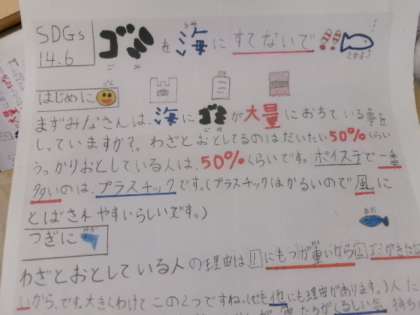 SDGs
14.6
ゴミを海にすてないで!!
はじめに
まずみなさんは、海にゴミが大量におちている事を
しっていますか?わざとおとしてるのはだいたい50%くらい
うっかりおとしている人は、50%くらいです。ポイステで一番
多いのは、プラスチックです。(プラスチックはかるいので風に
とばされやすいらしいです。)
つぎに
わざとおとしている人の理由は①にもつが重いから②
から。です。大きくわけてこの2つですね。(他にも理由があります。)人に